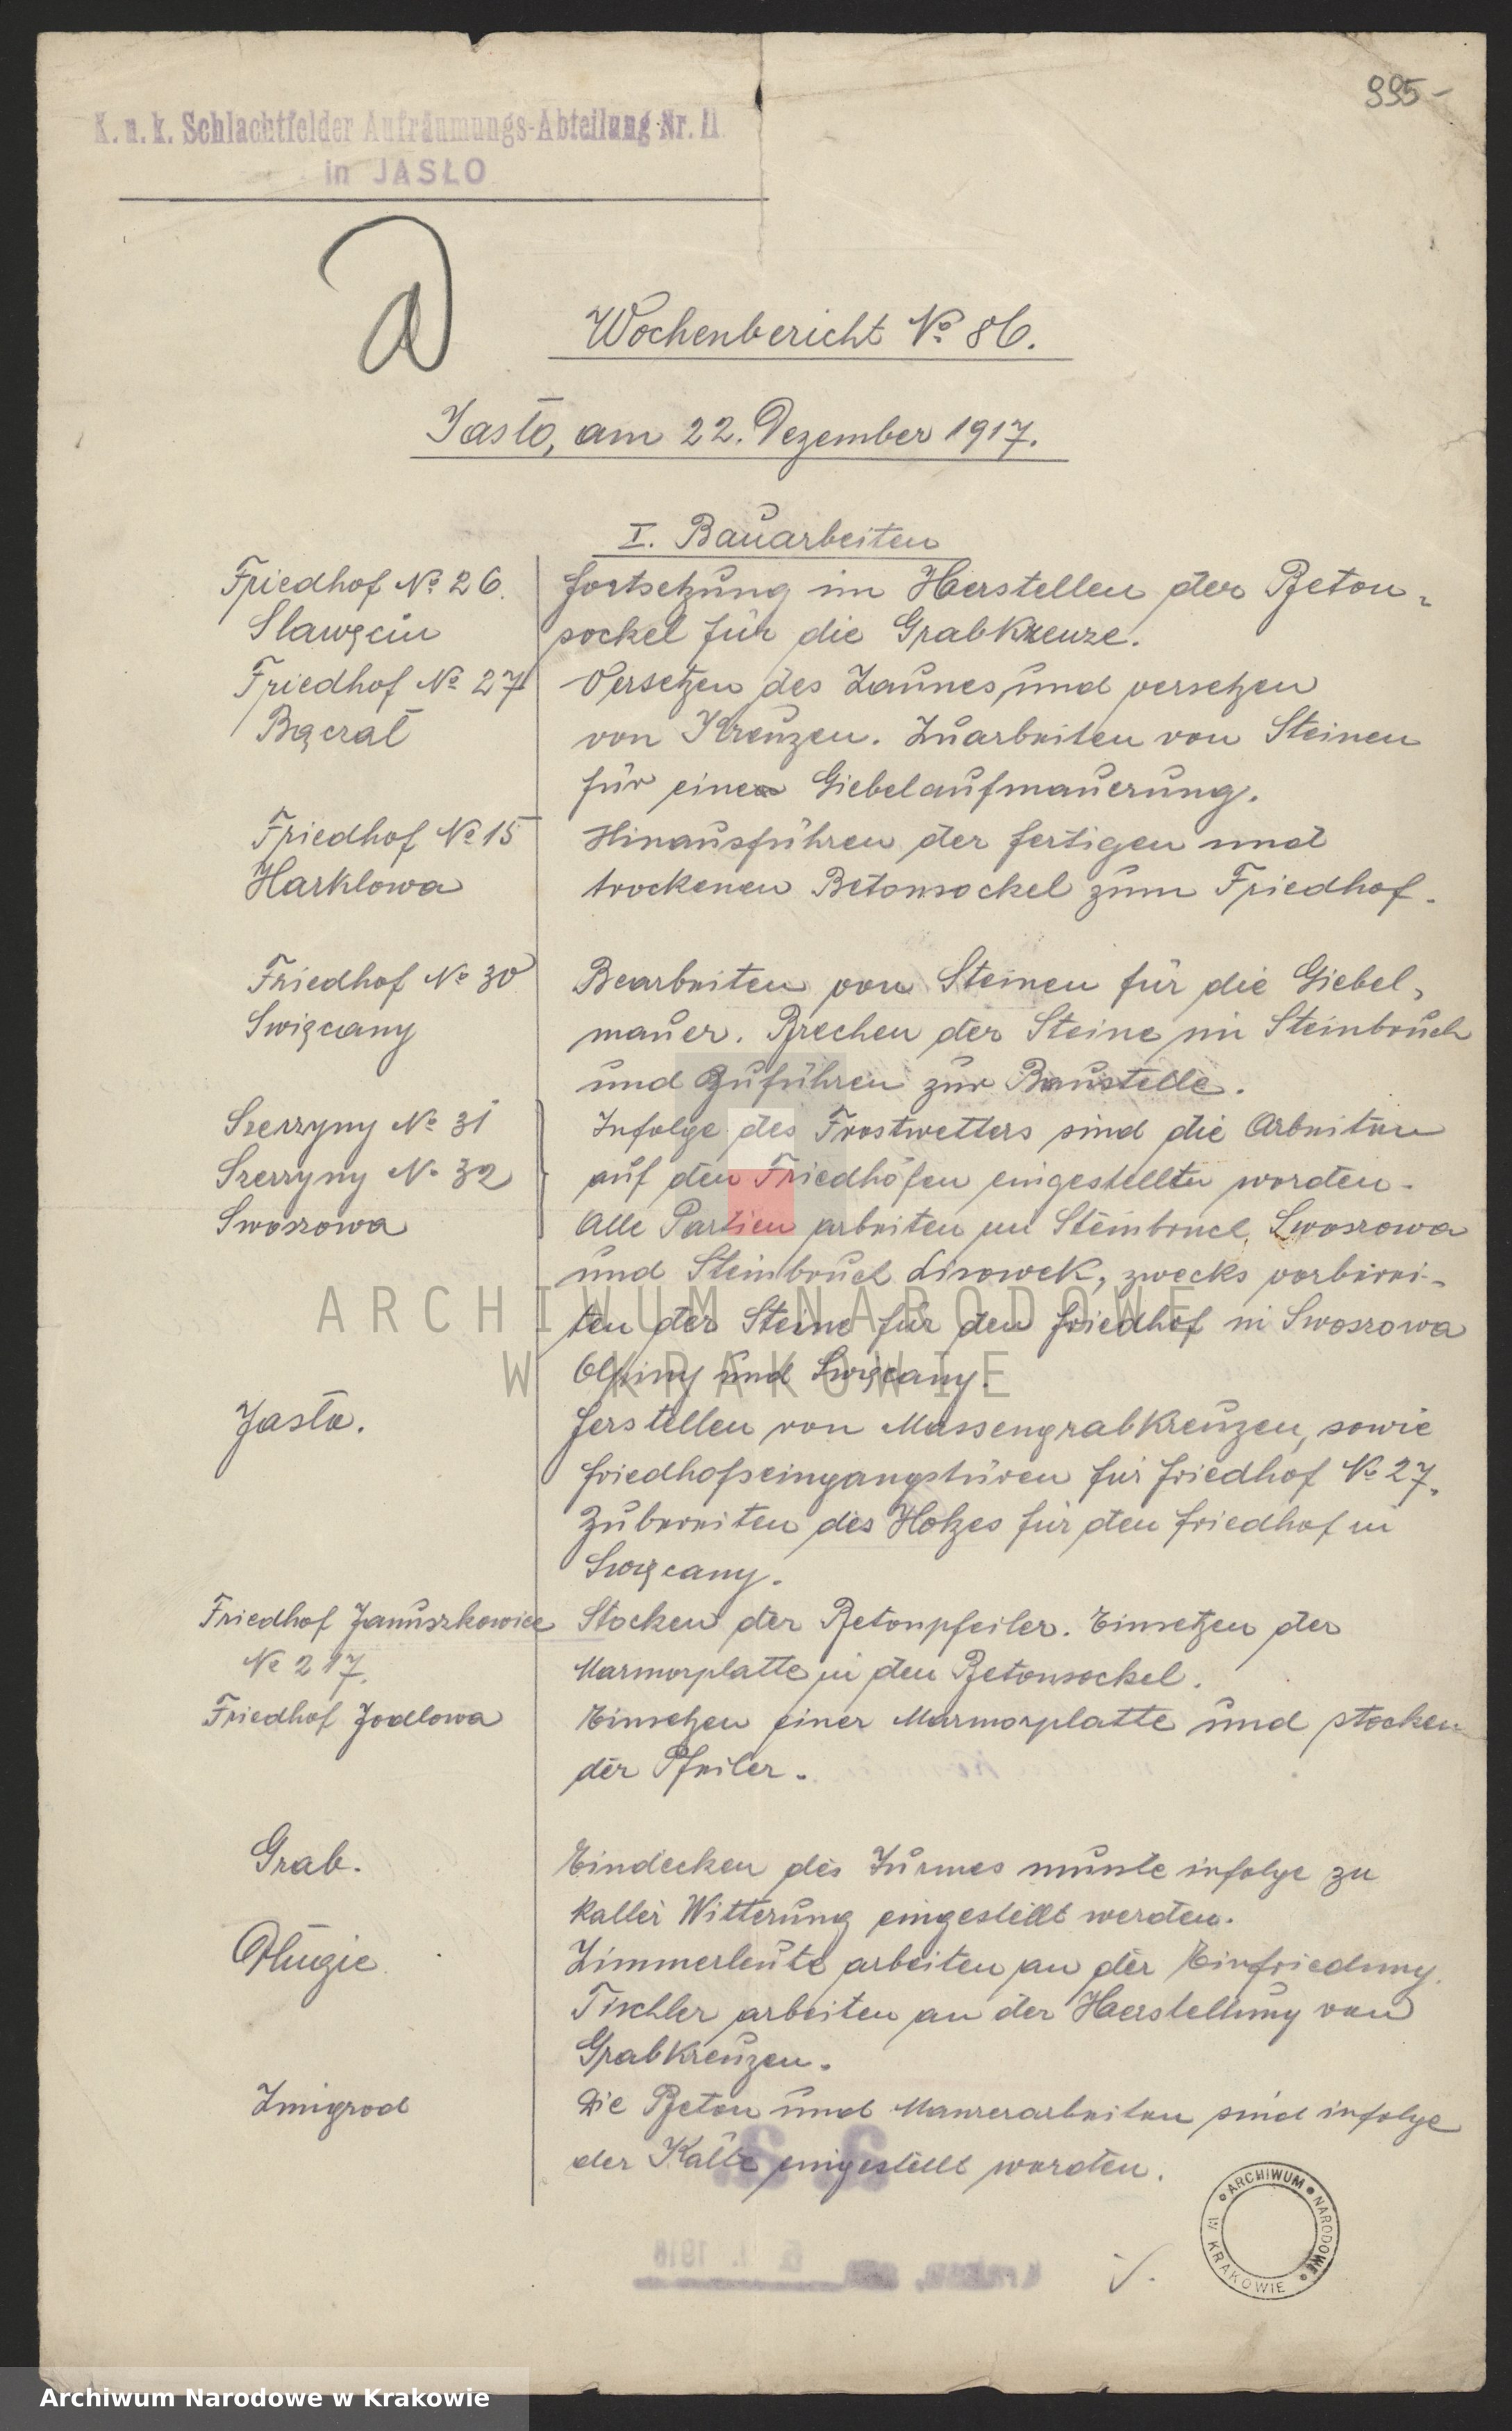 995-
K. u. k. Schlachtfelder Aufräumungs-Abteilung Nr. II.
in JASŁO
Wochenbericht No 86.
Jasło, am 22. Dezember 1917.
I. Bauarbeiten
Friedhof No 26. fortsetzung im Herstellen der Beton-
Slawęcin sockel für die Grabkreuze.
Friedhof No 27 Versetzen des Zaunes und versetzen
Bączał von Kreuzen. Zuarbeiten von Steinen
für eine Giebelaufmauerung.
Friedhof No 15 Hinausführen der fertigen und
Harklowa trockenen Betonsockel zum Friedhof.
Friedhof No 30 Bearbeiten von Steinen für die Giebel-
Swięcany mauer. Brechen der Steine im Steinbruch
und Zuführen zur Baustelle.
Szerzyny No 31 Infolge des Frostwetters sind die Arbeiten
Szerzyny No 32 auf den Friedhöfen eingestellt worden.
Swoszowa Alle Partien arbeiten im Steinbruch Swoszowa
und Steinbruch Lisowek, zwecks vorberei-
ten der Steine für den friedhof in Swoszowa
Olpiny und Swięcany.
Jasło. Herstellen von Massengrabkreuzen, sowie
friedhofseingangstüren für friedhof No 27.
Zubereiten des Holzes für den friedhof in
Swięcany.
Friedhof Januszkowice Stocken der Betonpfeiler. Einsetzen der
No 217. Marmorplatte in den Betonsockel.
Friedhof Jodlowa Einsetzen einer Marmorplatte und stocken
der Pfeiler.
Grab. Eindecken des Turmes musste infolge zu
kalter Witterung eingestellt werden.
Długie Zimmerleute arbeiten an der Einfriedung.
Tischler arbeiten an der Herstellung von
Grabkreuzen.
Zmigrod Die Beton und Maurerarbeiten sind infolge
der Kälte eingestellt worden.
ARCHIWUM NARODOWE
W KRAKOWIE
ARCHIWUM NARODOWE W KRAKOWIE
Archiwum Narodowe w Krakowie